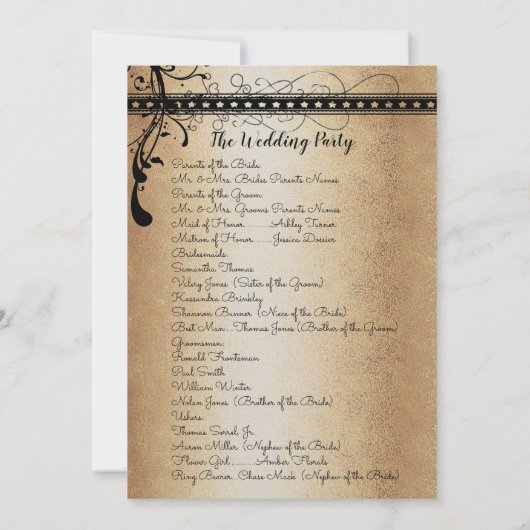 The Wedding Party
Parents of the Bride:
Mr. & Mrs. Brides Parents Names
Parents of the Groom:
Mr. & Mrs. Grooms Parents Names
Maid of Honor..........Ashley Turner
Matron of Honor........Jessica Dossier
Bridesmaids:
Samantha Thomas
Valery Jones (Sister of the Groom)
Kassandra Brinkley
Shannon Banner (Niece of the Bride)
Best Man....Thomas Jones (Brother of the Groom)
Groomsmen:
Ronald Frontsman
Paul Smith
William Winter
Nolan Jones (Brother of the Bride)
Ushers:
Thomas Sorrel, Jr.
Aaron Miller (Nephew of the Bride)
Flower Girl..........Amber Florals
Ring Bearer: Chase Mack (Nephew of the Bride)